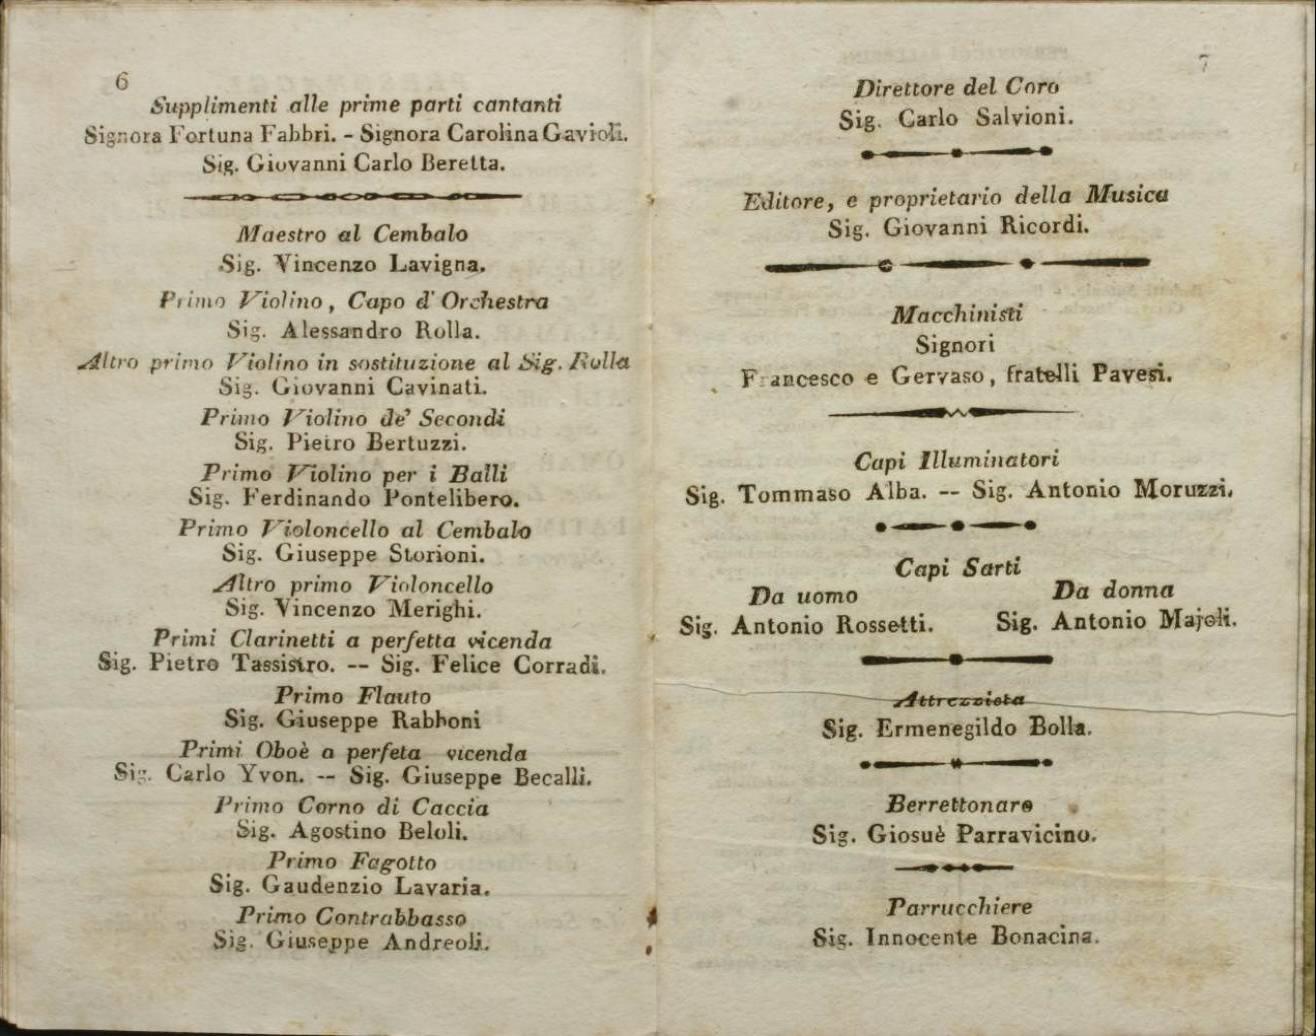 6
Supplimenti alle prime parti cantanti
Signora Fortuna Fabbri. - Signora Carolina Gavioli.
Sig. Giovanni Carlo Beretta.
Maestro al Cembalo
Sig. Vincenzo Lavigna.
Primo Violino, Capo d' Orchestra
Sig. Alessandro Rolla.
Altro primo Violino in sostituzione al Sig. Rolla
Sig. Giovanni Cavinati.
Primo Violino de' Secondi
Sig. Pietro Bertuzzi.
Primo Violino per i Balli
Sig. Ferdinando Pontelibero.
Primo Violoncello al Cembalo
Sig. Giuseppe Storioni.
Altro primo Violoncello
Sig. Vincenzo Merighi.
Primi Clarinetti a perfetta vicenda
Sig. Pietro Tassistro. -- Sig. Felice Corradi.
Primo Flauto
Sig. Giuseppe Rabboni
Primi Oboè a perfeta vicenda
Sig. Carlo Yvon. -- Sig. Giuseppe Becalli.
Primo Corno di Caccia
Sig. Agostino Beloli.
Primo Fagotto
Sig. Gaudenzio Lavaria.
Primo Contrabbasso
Sig. Giuseppe Andreoli.
7
Direttore del Coro
Sig. Carlo Salvioni.
Editore, e proprietario della Musica
Sig. Giovanni Ricordi.
Macchinisti
Signori
Francesco e Gervaso, fratelli Pavesi.
Capi Illuminatori
Sig. Tommaso Alba. -- Sig. Antonio Moruzzi.
Capi Sarti
Da uomo Da donna
Sig. Antonio Rossetti. Sig. Antonio Majoli.
Attrezzista
Sig. Ermenegildo Bolla.
Berrettonaro
Sig. Giosuè Parravicino.
Parrucchiere
Sig. Innocente Bonacina.